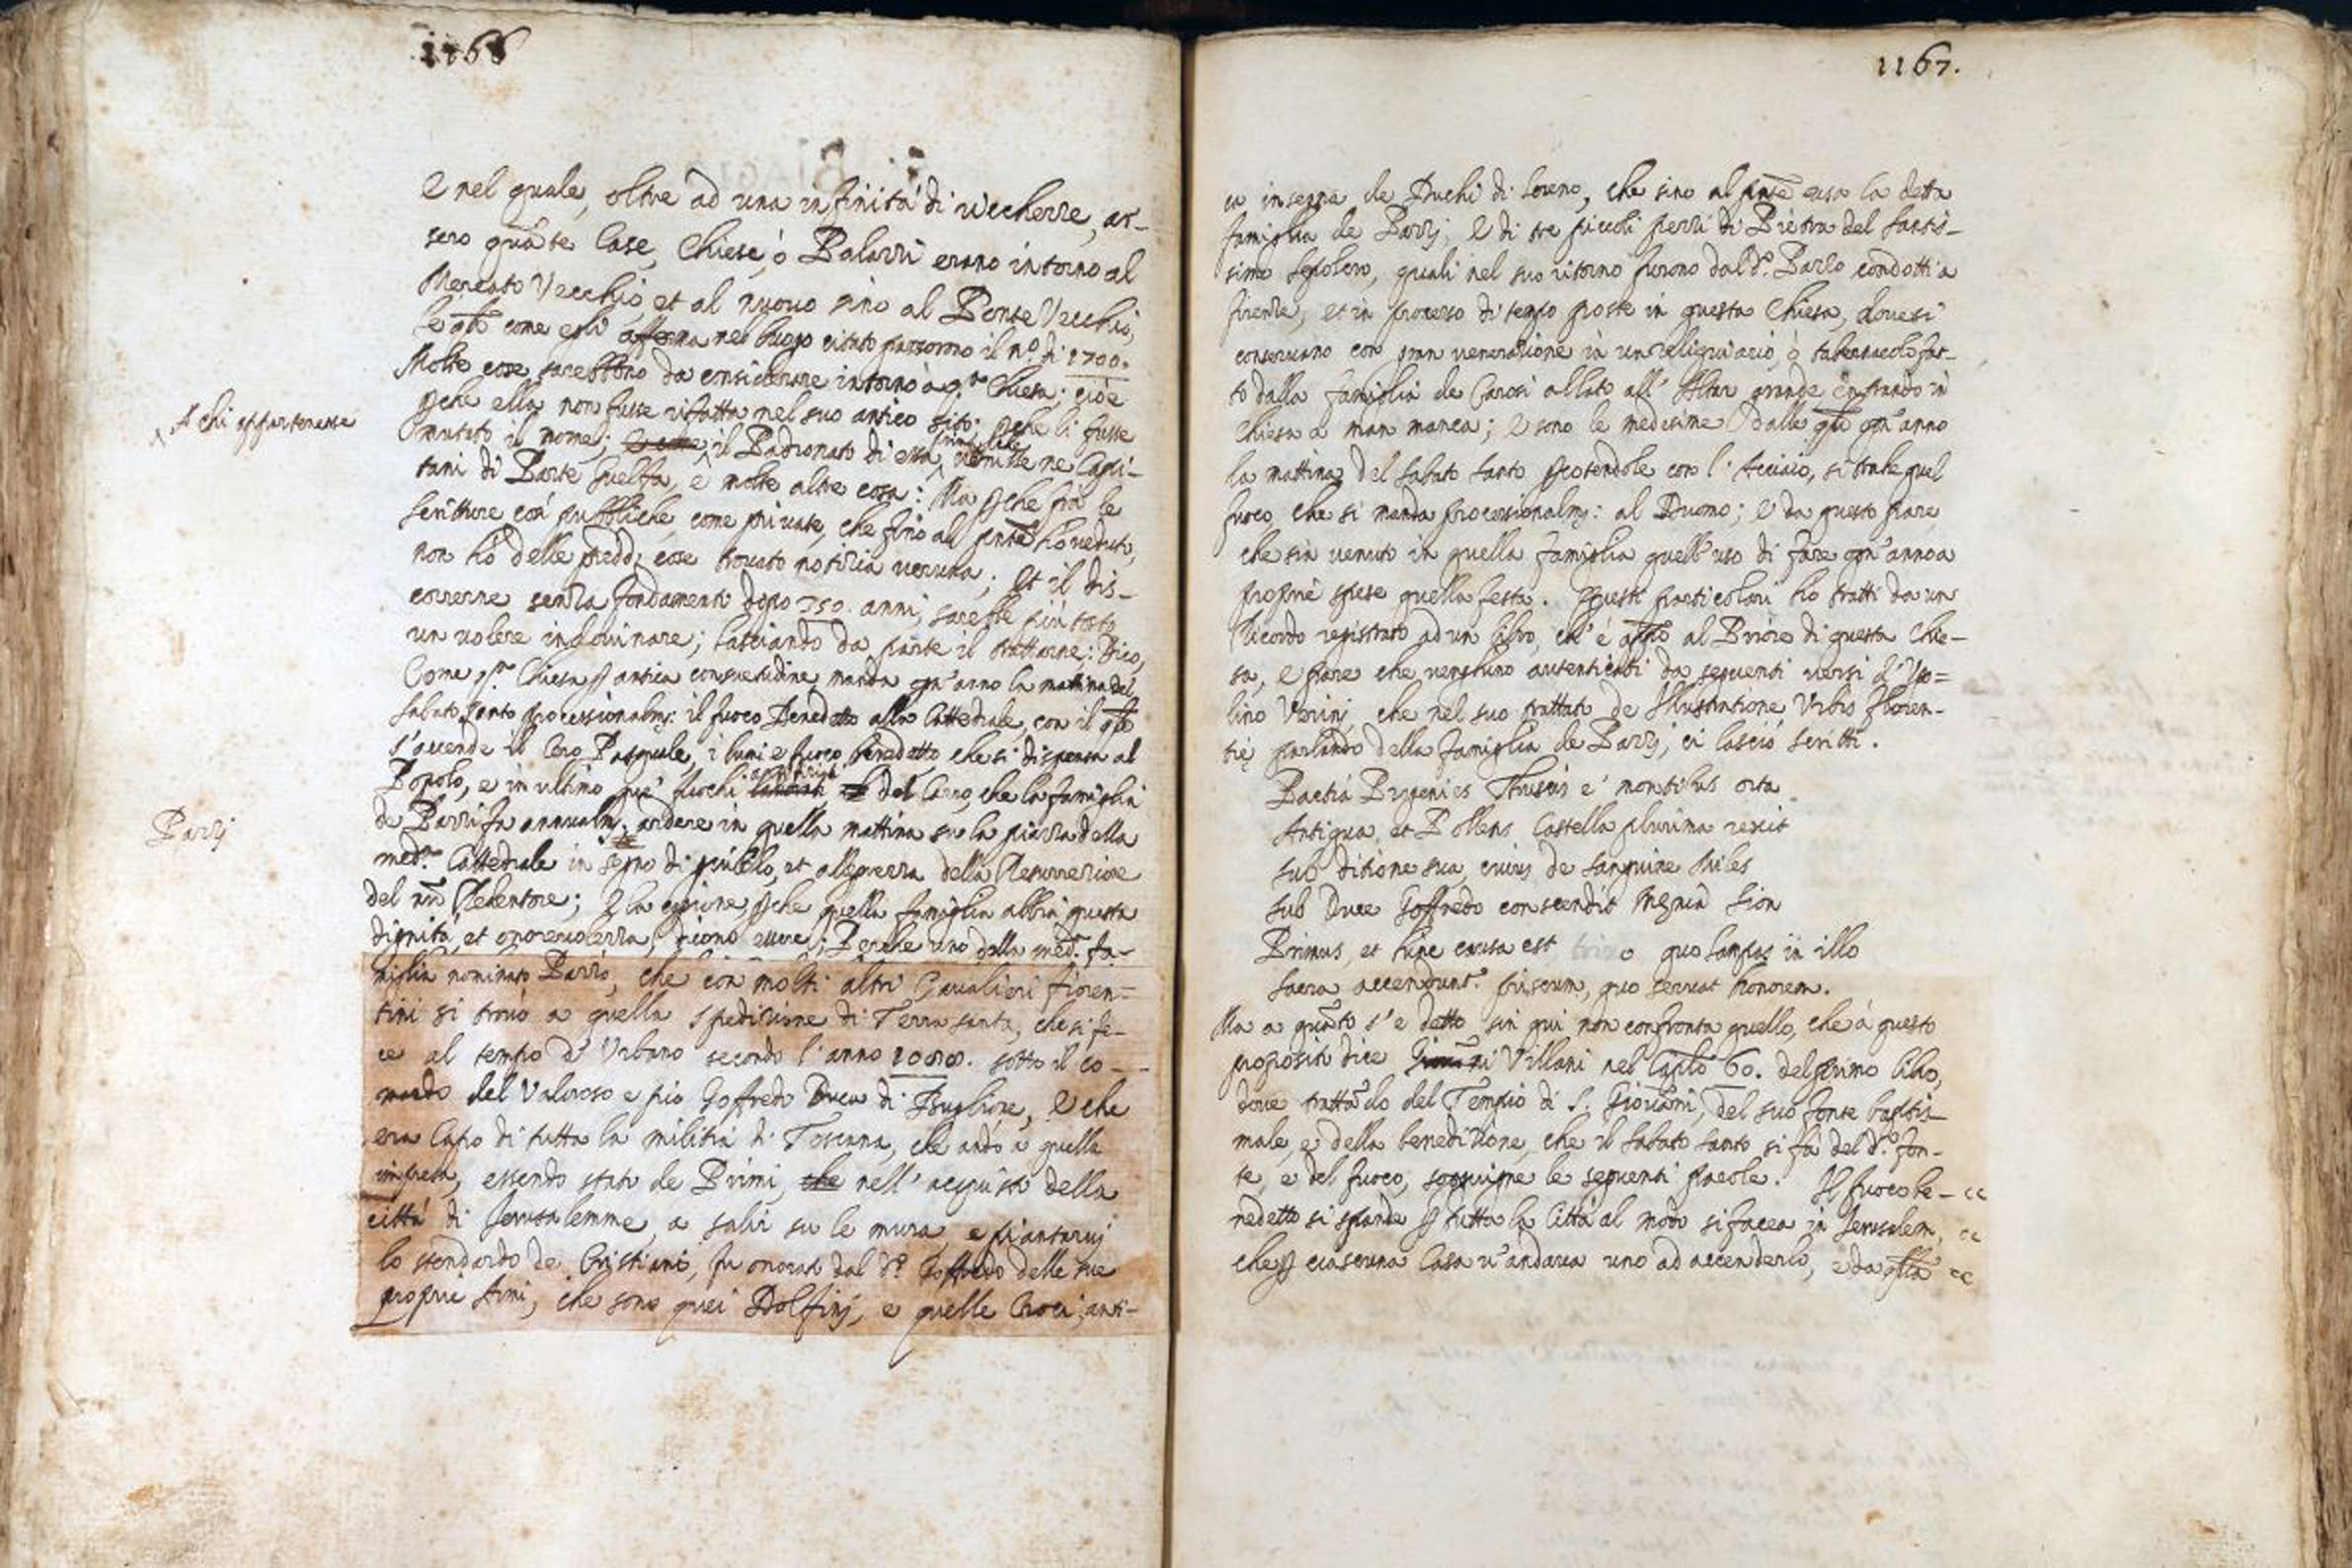 1166
e nel quale, oltre ad una infinità di ricchezze, ar-
sero quãte Case, Chiese, ò Palazzi erano intorno al
Mercato Vecchio, et al nuovo sino al Ponte Vecchio,
le qli come egli afferma nel luogo citato passorono il n.º di 1700.
Molte cose sarebbono da considerare intorno à q.ta Chiesa; cioè
A chi appartenesse
pche ella non fusse rifatta nel suo antico sito; pche li fusse
mutato il nome; il Padronato di essa, venisse ne Capi-
tani di Parte Guelfa, e molte altre cose: Ma pche fra le
scritture così pubbliche, come private, che fino al pnte hò veduto,
non hò delle predd. cose trovato notizia veruna; et il dis-
correrne senza fondamenti dopo 350. anni, sarebbe più tosto
un volere indovinare; lasciando da parte il trattarne: Dico,
Come q.ta Chiesa p antica consuetudine manda ogn'anno la mattina del
Sabato santo processionalm: il fuoco Benedetto alla Cattedrale, con il qle
s'accende il Cero Pasquale, i lumi e fuoco benedetto che si dispensa al
Popolo, e in ultimo que' fuochi del Carro, che la famiglia
Pazzj
de Pazzi fa annualm. ardere in quella mattina su la piazza della
med.ª Cattedrale in segno di giubilo, et allegrezza della Resurrezione
del nro Redentore; E la cagione, pche quella famiglia abbia questa
dignità, et onorevolezza, dicono essere; Perche uno della med.ª fa-
miglia nominato Pazzo, che con molti altri Cavalieri fioren=
tini si trovò a quella spedizione di Terra santa, che si fe-
ce al tempo d' Urbano secondo l'anno 1088. sotto il co-
mando del Valoroso e pio Goffredo Duca di Buglione, e che
era Capo di tutta la milizia di Toscana, che andò a quella
impresa, essendo stato de Primi, che nell' acquisto della
città di Jerusalemme, a salir su le mura, e piantarvj
lo stendardo de Cristiani, fu onorato dal d.º Goffredo delle sue
proprie Armi, che sono quei Dolfinj, e quelle Croci, anti-
1167.
ca insegna de Duchi di Loreno, che sino al pnte usa la detta
famiglia de Pazzj; e di tre piccoli pezzi di Pietra del santis-
simo Sepolcro, quali nel suo ritorno furono dal d.º Pazzo condotti a
firenze, et in processo di tempo poste in questa Chiesa, dove si
conservano con gran venerazione in un reliquiario, ò tabernacolo fat-
to dalla famiglia de Carosi allato all' Altar grande entrando in
Chiesa a man manca; e sono le medesime dalle qli ogn'anno
la mattina del Sabato Santo pcotendole con l' Acciaio, si trahe quel
fuoco, che si manda processionalm: al Duomo; e da questo pare
che sia venuto in quella famiglia quell'uso di fare ogn'anno a
proprie spese quella festa. Questi particolari ho tratti da un
Ricordo registrato ad un libro, ch' è appo al Priore di questa Chie-
sa, e pare che venghino autenticati da seguenti versi d' Ugo=
lino Verinj, che nel suo trattato de Illustratione Urbis floren-
tię parlando della famiglia de Pazzj, ci lasciò scritti.
Pactia Progenies Thuscis e' montibus orta
Antiqua, et Pollens Castella plurima rexit
sub ditione sua, cuius de sanguine Miles
sub Duce Goffredo conscendit Męnia Sion
Primus, et hinc causa est quo lampas in illo
sacra accendunt. priscum, quo servat honorem.
Ma a quãto s'e detto sin qui non confronta quello, che à questo
proposito dice Villani nel Caplo 60. del primo libro,
dove trattãdo del Tempio di S. Giovãni, del suo fonte battis-
male, e della benedizione, che il Sabato santo si fà del d.º fon-
te, e del fuoco, soggiugne le seguenti parole. Il fuoco be-
nedetto si spande p tutta la Città al modo si facea in Jerusalem,
che p ciascuna Casa v'andava uno ad accenderlo, e da qlla